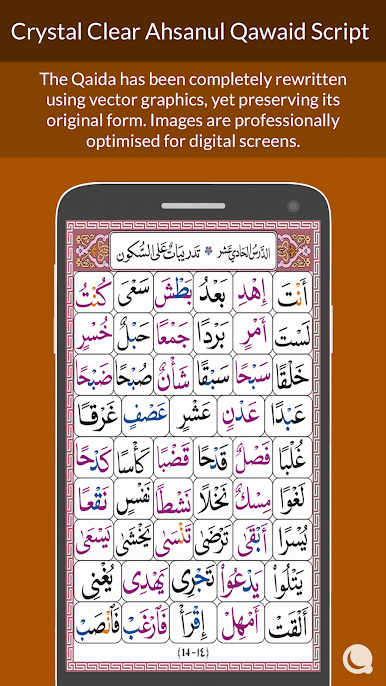 Crystal Clear Ahsanul Qawaid Script
The Qaida has been completely rewritten
using vector graphics, yet preserving its
original form. Images are professionally
optimised for digital screens.
الدَّرْسُ الْحَادِيْ عَشَرَ ٭ تَدْرِيْبَاتٌ عَلَى السُّكُوْنِ
أَنْتَ إِهْدِ بَعْدُ بَطْشَ سَعْىَ كُنْتُ
لَسْتَ أَمْرٍ بَرْدًا جَمْعًا حَبْلٌ خُسْرٍ
خَلْقًا سَبْحًا سَبْقًا شَأْنٌ صُبْحًا ضَبْحًا
عَبْدًا عَدْنٍ عَشْرٍ عَصْفٍ غَرْقًا
غُلْبًا فَصْلٌ قَدْحًا قَضْبًا كَأْسًا كَدْحًا
لَغْوًا مِسْكٌ نَخْلًا نَشْطًا نَفْسٍ نَقْعًا
يُسْرًا أَبْقٰى تَرْضٰى تَنْسٰى يَخْشٰى يَسْعٰى
يَتْلُوْا يَدْعُوْا تَجْرِىْ يَهْدِىْ يُغْنِىْ
أَلْقَتْ أَمْهِلْ إِقْرَأْ فَارْغَبْ فَانْصَبْ
(14-١٤)